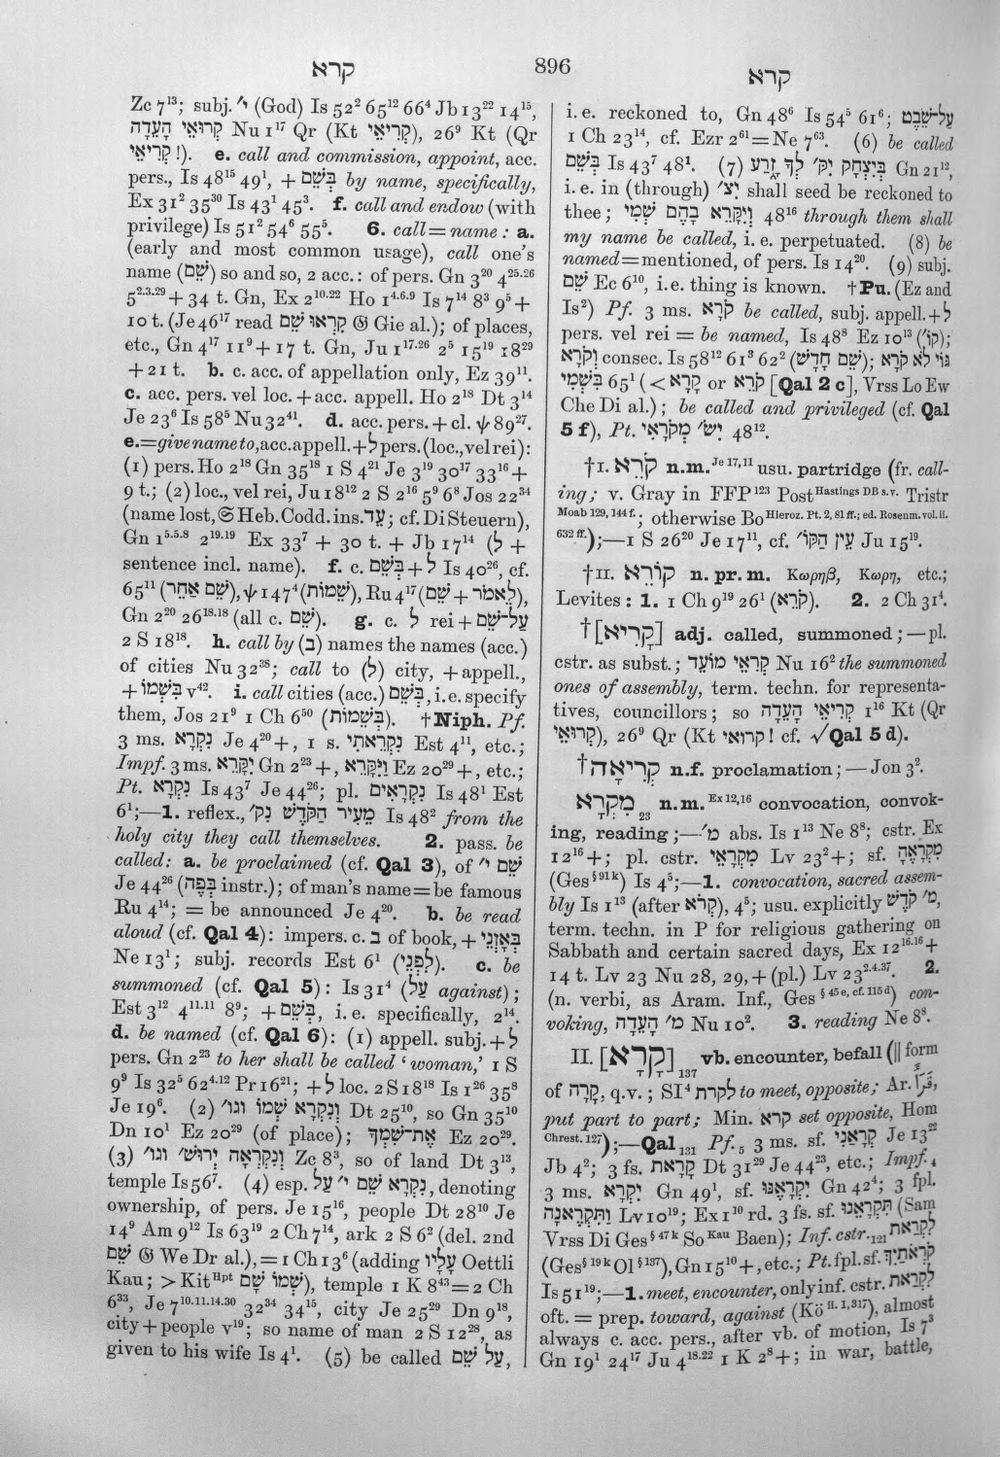 קרא
896
קרא
Zc 7¹³; subj. י׳ (God) Is 52² 65¹² 66⁴ Jb 13²² 14¹⁵,
קְרוּאֵי הָעֵדָה Nu 1¹⁷ Qr (Kt קְרִיאֵי), 26⁹ Kt (Qr
קְרִיאֵי!). e. call and commission, appoint, acc.
pers., Is 48¹⁵ 49¹, + בְּשֵׁם by name, specifically,
Ex 31² 35³⁰ Is 43¹ 45³. f. call and endow (with
privilege) Is 51² 54⁶ 55⁵. 6. call = name: a.
(early and most common usage), call one's
name (שֵׁם) so and so, 2 acc.: of pers. Gn 3²⁰ 4²⁵·²⁶
5²·³·²⁹ + 34 t. Gn, Ex 2¹⁰·²² Ho 1⁴·⁶·⁹ Is 7¹⁴ 8³ 9⁵ +
10 t. (Je 46¹⁷ read קִרְאוּ שֵׁם 𝔊 Gie al.); of places,
etc., Gn 4¹⁷ 11⁹ + 17 t. Gn, Ju 1¹⁷·²⁶ 2⁵ 15¹⁹ 18²⁹
+ 21 t. b. c. acc. of appellation only, Ez 39¹¹.
c. acc. pers. vel loc. + acc. appell. Ho 2¹⁸ Dt 3¹⁴
Je 23⁶ Is 58⁵ Nu 32⁴¹. d. acc. pers. + cl. ψ 89²⁷.
e. = give name to, acc. appell. + לְ pers. (loc., vel rei):
(1) pers. Ho 2¹⁸ Gn 35¹⁸ 1 S 4²¹ Je 3¹⁹ 30¹⁷ 33¹⁶ +
9 t.; (2) loc., vel rei, Ju 18¹² 2 S 2¹⁶ 5⁹ 6⁸ Jos 22³⁴
(name lost, 𝔖 Heb. Codd. ins. עֵד; cf. Di Steuern),
Gn 1⁵·⁵·⁸ 2¹⁹·¹⁹ Ex 33⁷ + 30 t. + Jb 17¹⁴ (לְ +
sentence incl. name). f. c. בְּשֵׁם + לְ Is 40²⁶, cf.
65¹¹ (שֵׁם אַחֵר), ψ 147⁴ (שֵׁמוֹת), Ru 4¹⁷ (שֵׁם + לֵאמֹר),
Gn 2²⁰ 26¹⁸·¹⁸ (all c. שֵׁם). g. c. לְ rei + עַל־שֵׁם
2 S 18¹⁸. h. call by (בְּ) names the names (acc.)
of cities Nu 32³⁸; call to (לְ) city, + appell.,
+ בִּשְׁמוֹ v⁴². i. call cities (acc.) בְּשֵׁם, i.e. specify
them, Jos 21⁹ 1 Ch 6⁵⁰ (בְּשֵׁמוֹת). †Niph. Pf.
3 ms. נִקְרָא Je 4²⁰ +, 1 s. נִקְרֵאתִי Est 4¹¹, etc.;
Impf. 3 ms. יִקָּרֵא Gn 2²³ +, וַיִּקָּרֵא Ez 20²⁹ +, etc.;
Pt. נִקְרָא Is 43⁷ Je 44²⁶; pl. נִקְרָאִים Is 48¹ Est
6¹;—1. reflex., מֵעִיר הַקֹּדֶשׁ נִקְ׳ Is 48² from the
holy city they call themselves. 2. pass. be
called: a. be proclaimed (cf. Qal 3), of שֵׁם י׳
Je 44²⁶ (בְּפֶה instr.); of man's name = be famous
Ru 4¹⁴; = be announced Je 4²⁰. b. be read
aloud (cf. Qal 4): impers. c. בְּ of book, + בְּאָזְנֵי
Ne 13¹; subj. records Est 6¹ (לִפְנֵי). c. be
summoned (cf. Qal 5): Is 31⁴ (עַל against);
Est 3¹² 4¹¹·¹¹ 8⁹; + בְּשֵׁם, i.e. specifically, 2¹⁴.
d. be named (cf. Qal 6): (1) appell. subj. + לְ
pers. Gn 2²³ to her shall be called ‘woman,’ 1 S
9⁹ Is 32⁵ 62⁴·¹² Pr 16²¹; + לְ loc. 2 S 18¹⁸ Is 1²⁶ 35⁸
Je 19⁶. (2) וְנִקְרָא שְׁמוֹ וגו׳ Dt 25¹⁰, so Gn 35¹⁰
Dn 10¹ Ez 20²⁹ (of place); אֶת־שִׁמְךָ Ez 20²⁹.
(3) וְנִקְרְאָה יְרוּשׁ׳ וגו׳ Zc 8³, so of land Dt 3¹³,
temple Is 56⁷. (4) esp. נִקְרָא שֵׁם י׳ עַל, denoting
ownership, of pers. Je 15¹⁶, people Dt 28¹⁰ Je
14⁹ Am 9¹² Is 63¹⁹ 2 Ch 7¹⁴, ark 2 S 6² (del. 2nd
שֵׁם 𝔊 We Dr al.), = 1 Ch 13⁶ (adding עָלָיו Oettli
Kau; > Kit ᴴᵖᵗ שְׁמוֹ שָׁם), temple 1 K 8⁴³ = 2 Ch
6³³, Je 7¹⁰·¹¹·¹⁴·³⁰ 32³⁴ 34¹⁵, city Je 25²⁹ Dn 9¹⁸,
city + people v¹⁹; so name of man 2 S 12²⁸, as
given to his wife Is 4¹. (5) be called עַל שֵׁם,
i.e. reckoned to, Gn 48⁶ Is 54⁵ 61⁶; עַל־שֵׁבֶט
1 Ch 23¹⁴, cf. Ezr 2⁶¹ = Ne 7⁶³. (6) be called
בְּשֵׁם Is 43⁷ 48¹. (7) בְּיִצְחָק יִקּ׳ לְךָ זָרַע Gn 21¹²,
i.e. in (through) יִצ׳ shall seed be reckoned to
thee; וְיִקָּרֵא בָהֶם שְׁמִי 48¹⁶ through them shall
my name be called, i.e. perpetuated. (8) be
named = mentioned, of pers. Is 14²⁰. (9) subj.
שֵׁם Ec 6¹⁰, i.e. thing is known. †Pu. (Ez and
Is²) Pf. 3 ms. קֹרָא be called, subj. appell. + לְ
pers. vel rei = be named, Is 48⁸ Ez 10¹³ (קוֹ׳);
וְקֹרָא consec. Is 58¹² 61³ 62² (שֵׁם חָדָשׁ); גּוֹי לֹא קֹרָא
בִּשְׁמִי 65¹ (< קָרָא or קֹרֵא [Qal 2 c], Vrss Lo Ew
Che Di al.); be called and privileged (cf. Qal
5 f), Pt. יִשׂ׳ מְקֹרָאִי 48¹².
†I. קֹרֵא n.m. Je 17,11 usu. partridge (fr. call-
ing; v. Gray in FFP ¹²³ Post Hastings DB s.v. Tristr
Moab 129, 144 f.; otherwise Bo Hieroz. Pt. 2, 81 ff.; ed. Rosenm. vol. ii.
632 ff.);—1 S 26²⁰ Je 17¹¹, cf. עֵין הַקּוֹ׳ Ju 15¹⁹.
†II. קוֹרֵא n. pr. m. Κωρηβ, Κωρη, etc.;
Levites: 1. 1 Ch 9¹⁹ 26¹ (קֹרֵא). 2. 2 Ch 31⁴.
†[קָרִיא] adj. called, summoned;—pl.
cstr. as subst.; קְרִאֵי מוֹעֵד Nu 16² the summoned
ones of assembly, term. techn. for representa-
tives, councillors; so קְרִיאֵי הָעֵדָה 1¹⁶ Kt (Qr
קְרוּאֵי), 26⁹ Qr (Kt קרואי! cf. √Qal 5 d).
†קְרִיאָה n.f. proclamation;—Jon 3².
מִקְרָא 23 n.m. Ex 12,16 convocation, convok-
ing, reading;—מ׳ abs. Is 1¹³ Ne 8⁸; cstr. Ex
12¹⁶ +; pl. cstr. מִקְרָאֵי Lv 23² +; sf. מִקְרָאֶהָ
(Ges §91k) Is 4⁵;—1. convocation, sacred assem-
bly Is 1¹³ (after קְרֹא), 4⁵; usu. explicitly מ׳ קֹדֶשׁ,
term. techn. in P for religious gathering on
Sabbath and certain sacred days, Ex 12¹⁶·¹⁶ +
14 t. Lv 23 Nu 28, 29, + (pl.) Lv 23²·⁴·³⁷. 2.
(n. verbi, as Aram. Inf., Ges §45e, cf. 115d) con-
voking, מ׳ הָעֵדָה Nu 10². 3. reading Ne 8⁸.
II. [קָרָא] 137 vb. encounter, befall (|| form
of קָרָה, q.v.; SI⁴ לקרת to meet, opposite; Ar. قرأ
put part to part; Min. קרא set opposite, Hom
Chrest. 127);—Qal 131 Pf. 5 3 ms. sf. קְרָאַנִי Je 13²²
Jb 4²; 3 fs. קָרָאת Dt 31²⁹ Je 44²³, etc.; Impf. 4
3 ms. יִקְרָא Gn 49¹, sf. יִקְרָאֶנּוּ Gn 42⁴; 3 fpl.
וַתִּקְרֶאנָה Lv 10¹⁹; Ex 1¹⁰ rd. 3 fs. sf. תִּקְרָאֵנוּ (Sam
Vrss Di Ges §47k So Kau Baen); Inf. cstr. 121 לִקְרַאת
(Ges §19k Ol §137), Gn 15¹⁰ +, etc.; Pt. fpl. sf. קֹרְאֹתַיִךְ
Is 51¹⁹;—1. meet, encounter, only inf. cstr. לִקְרַאת
oft. = prep. toward, against (Kö II. 1, 317), almost
always c. acc. pers., after vb. of motion, Is 7³
Gn 19¹ 24¹⁷ Ju 4¹⁸·²² 1 K 2⁸ +; in war, battle,